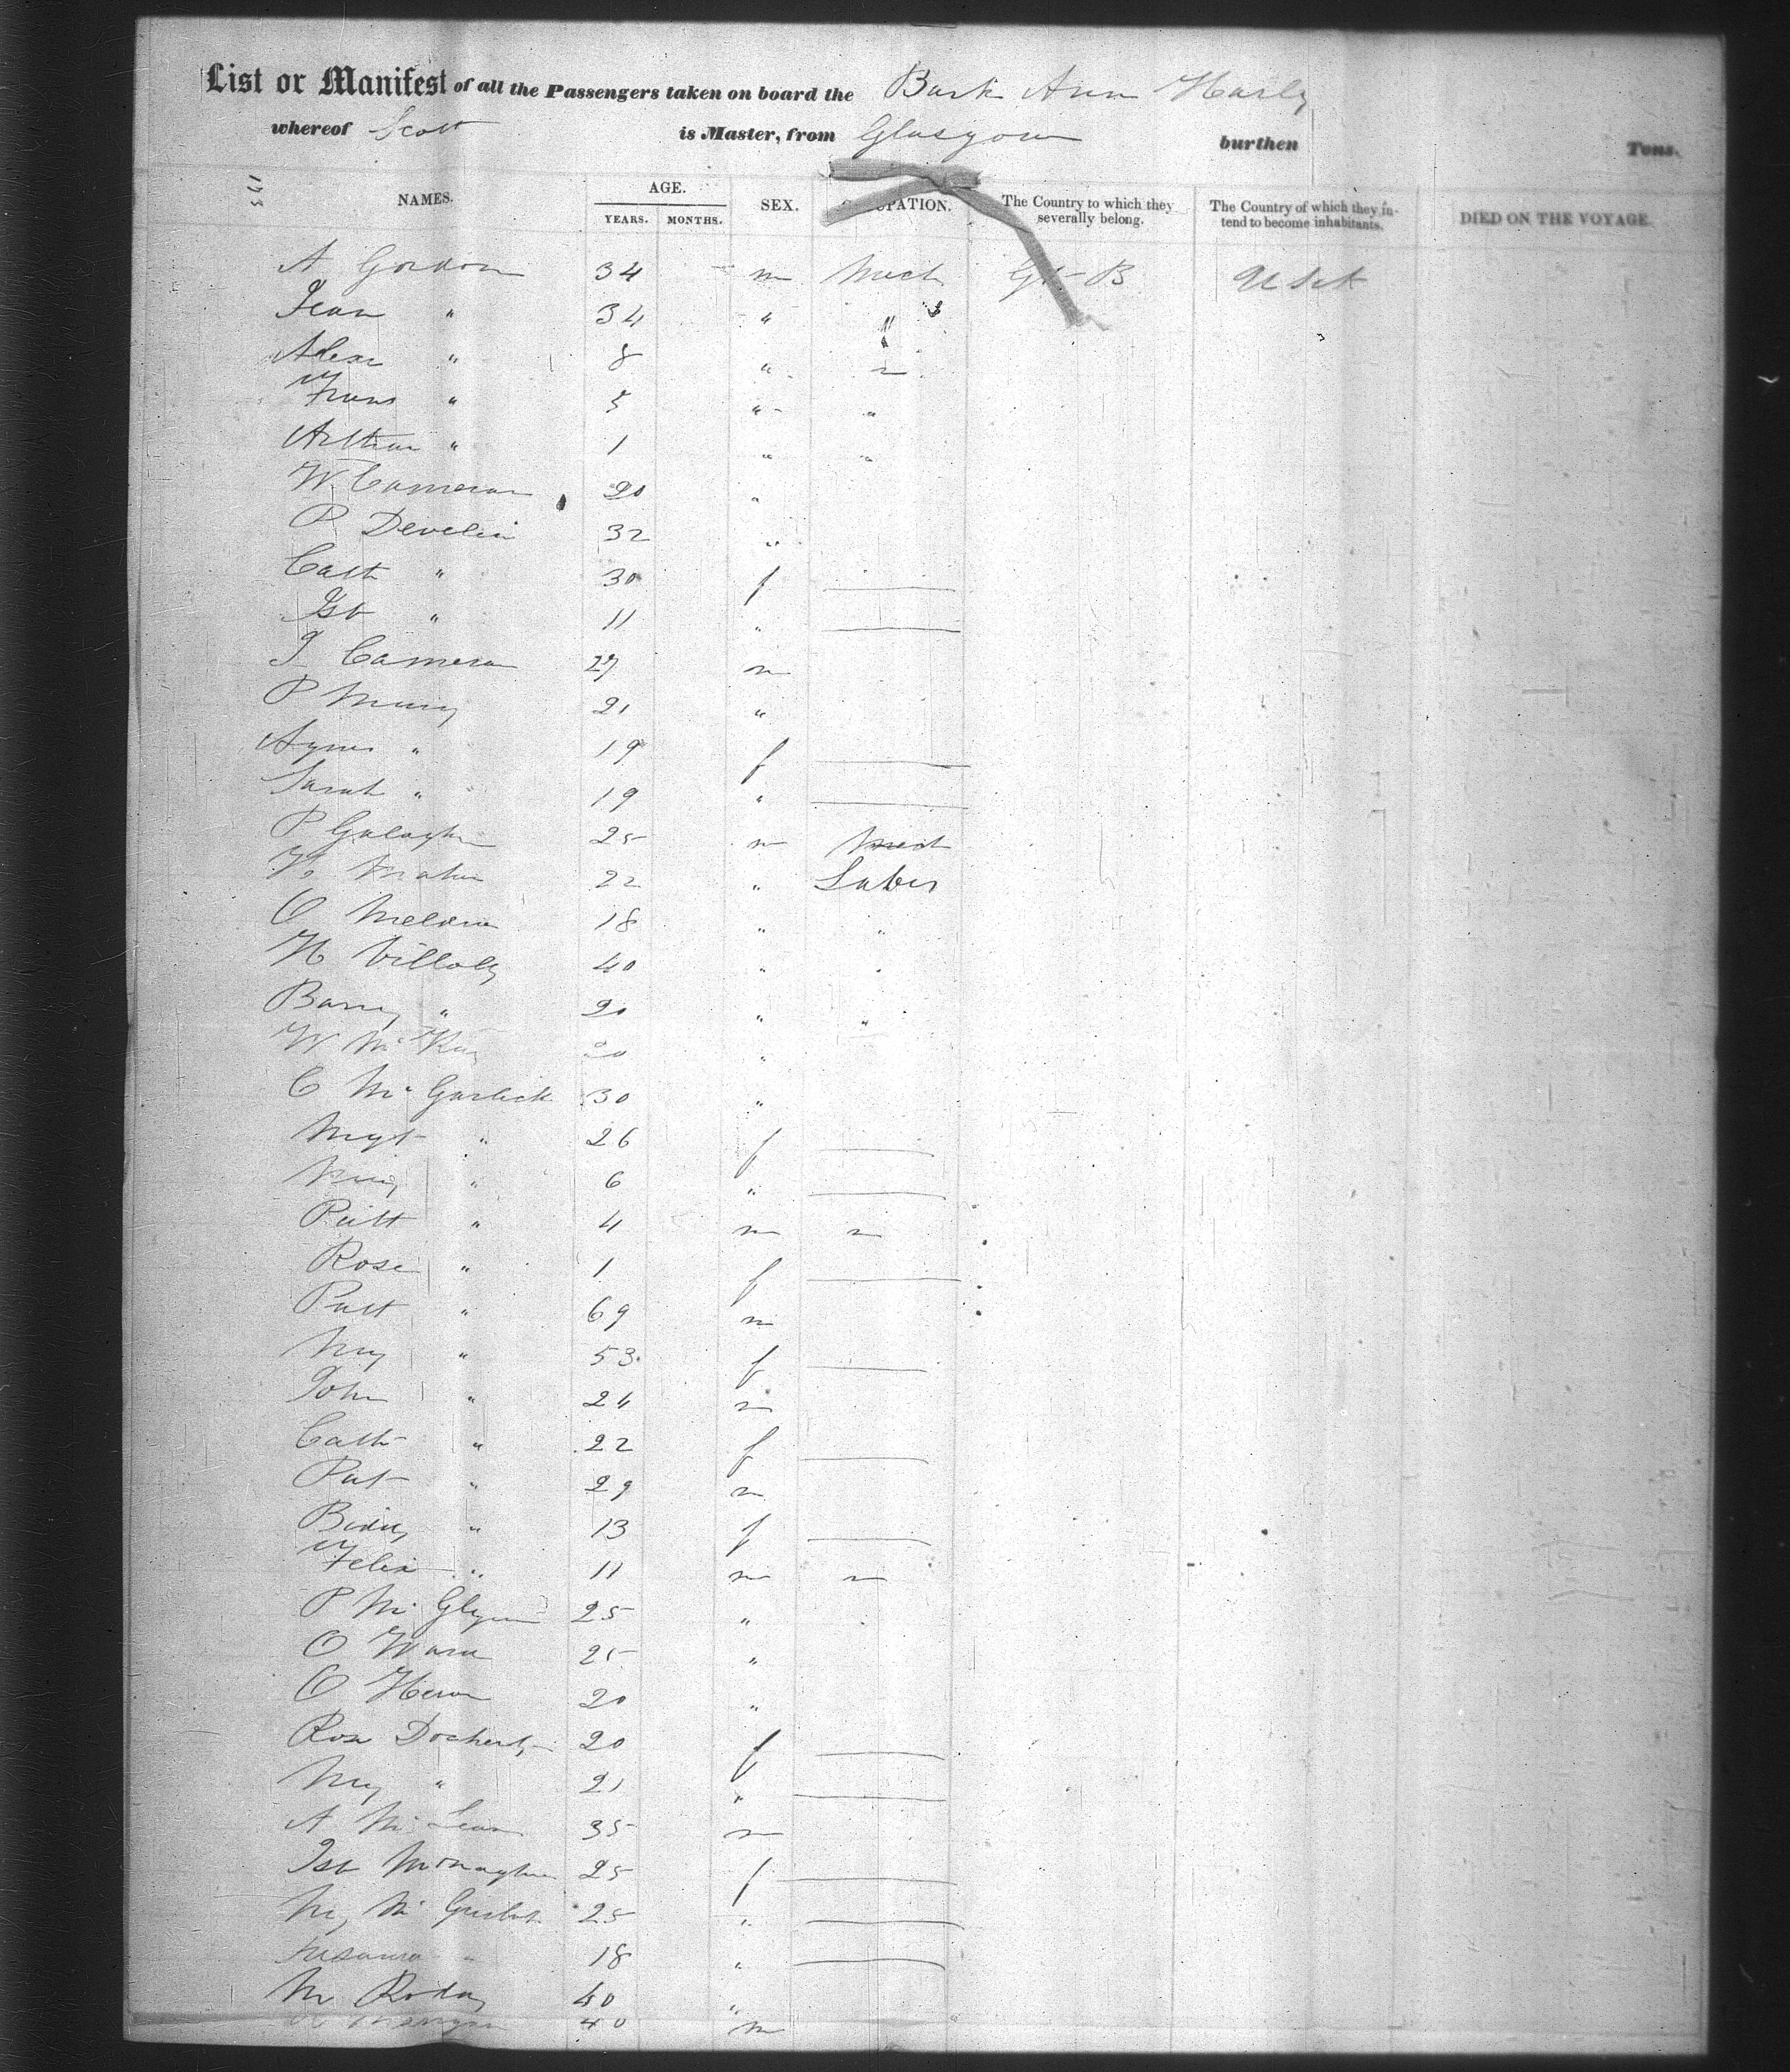 List or Manifest of all the Passengers taken on board the Bark Ann Harly
whereof Scott is Master, from Glasgow burthen Tons.
NAMES. AGE. YEARS. MONTHS. SEX. OCCUPATION. The Country to which they severally belong. The Country of which they intend to become inhabitants. DIED ON THE VOYAGE.
A Gordon 34 m Mech Gt B U States
Jean " 34 " "
Alexr " 8 " "
Frans " 5 " "
Arthur " 1 " "
W. Cameron 20 "
P Develin 32 "
Cath " 30 f
Isb " 11 "
J Cameron 27 m
P Murry 21 "
Agnes " 19 f
Sarah " 19 "
P Galagher 25 m Mech
22 " Labor
O Meldrum 18 " "
H Villaly 40 " "
Barry " 20 " "
W McKay 20 "
C Mc Garlick 30 "
Mgt " 26 f
Mary " 6 "
Patt " 4 m
Rose " 1 f
Patt " 69 m
My " 53 f
John " 24 m
Cath " 22 f
Pat " 29 m
Biddy " 13 f
Felix " 11 m
P Mc Glynn 25 "
O Ward 25 "
O Heron 20 "
Rose Docherty 20 f
My " 21 "
A McLean 35 m
Isb Monaghan 25 f
My Mc Garlick 25 "
Susanna " 18 "
M Roday 40 "
40 m